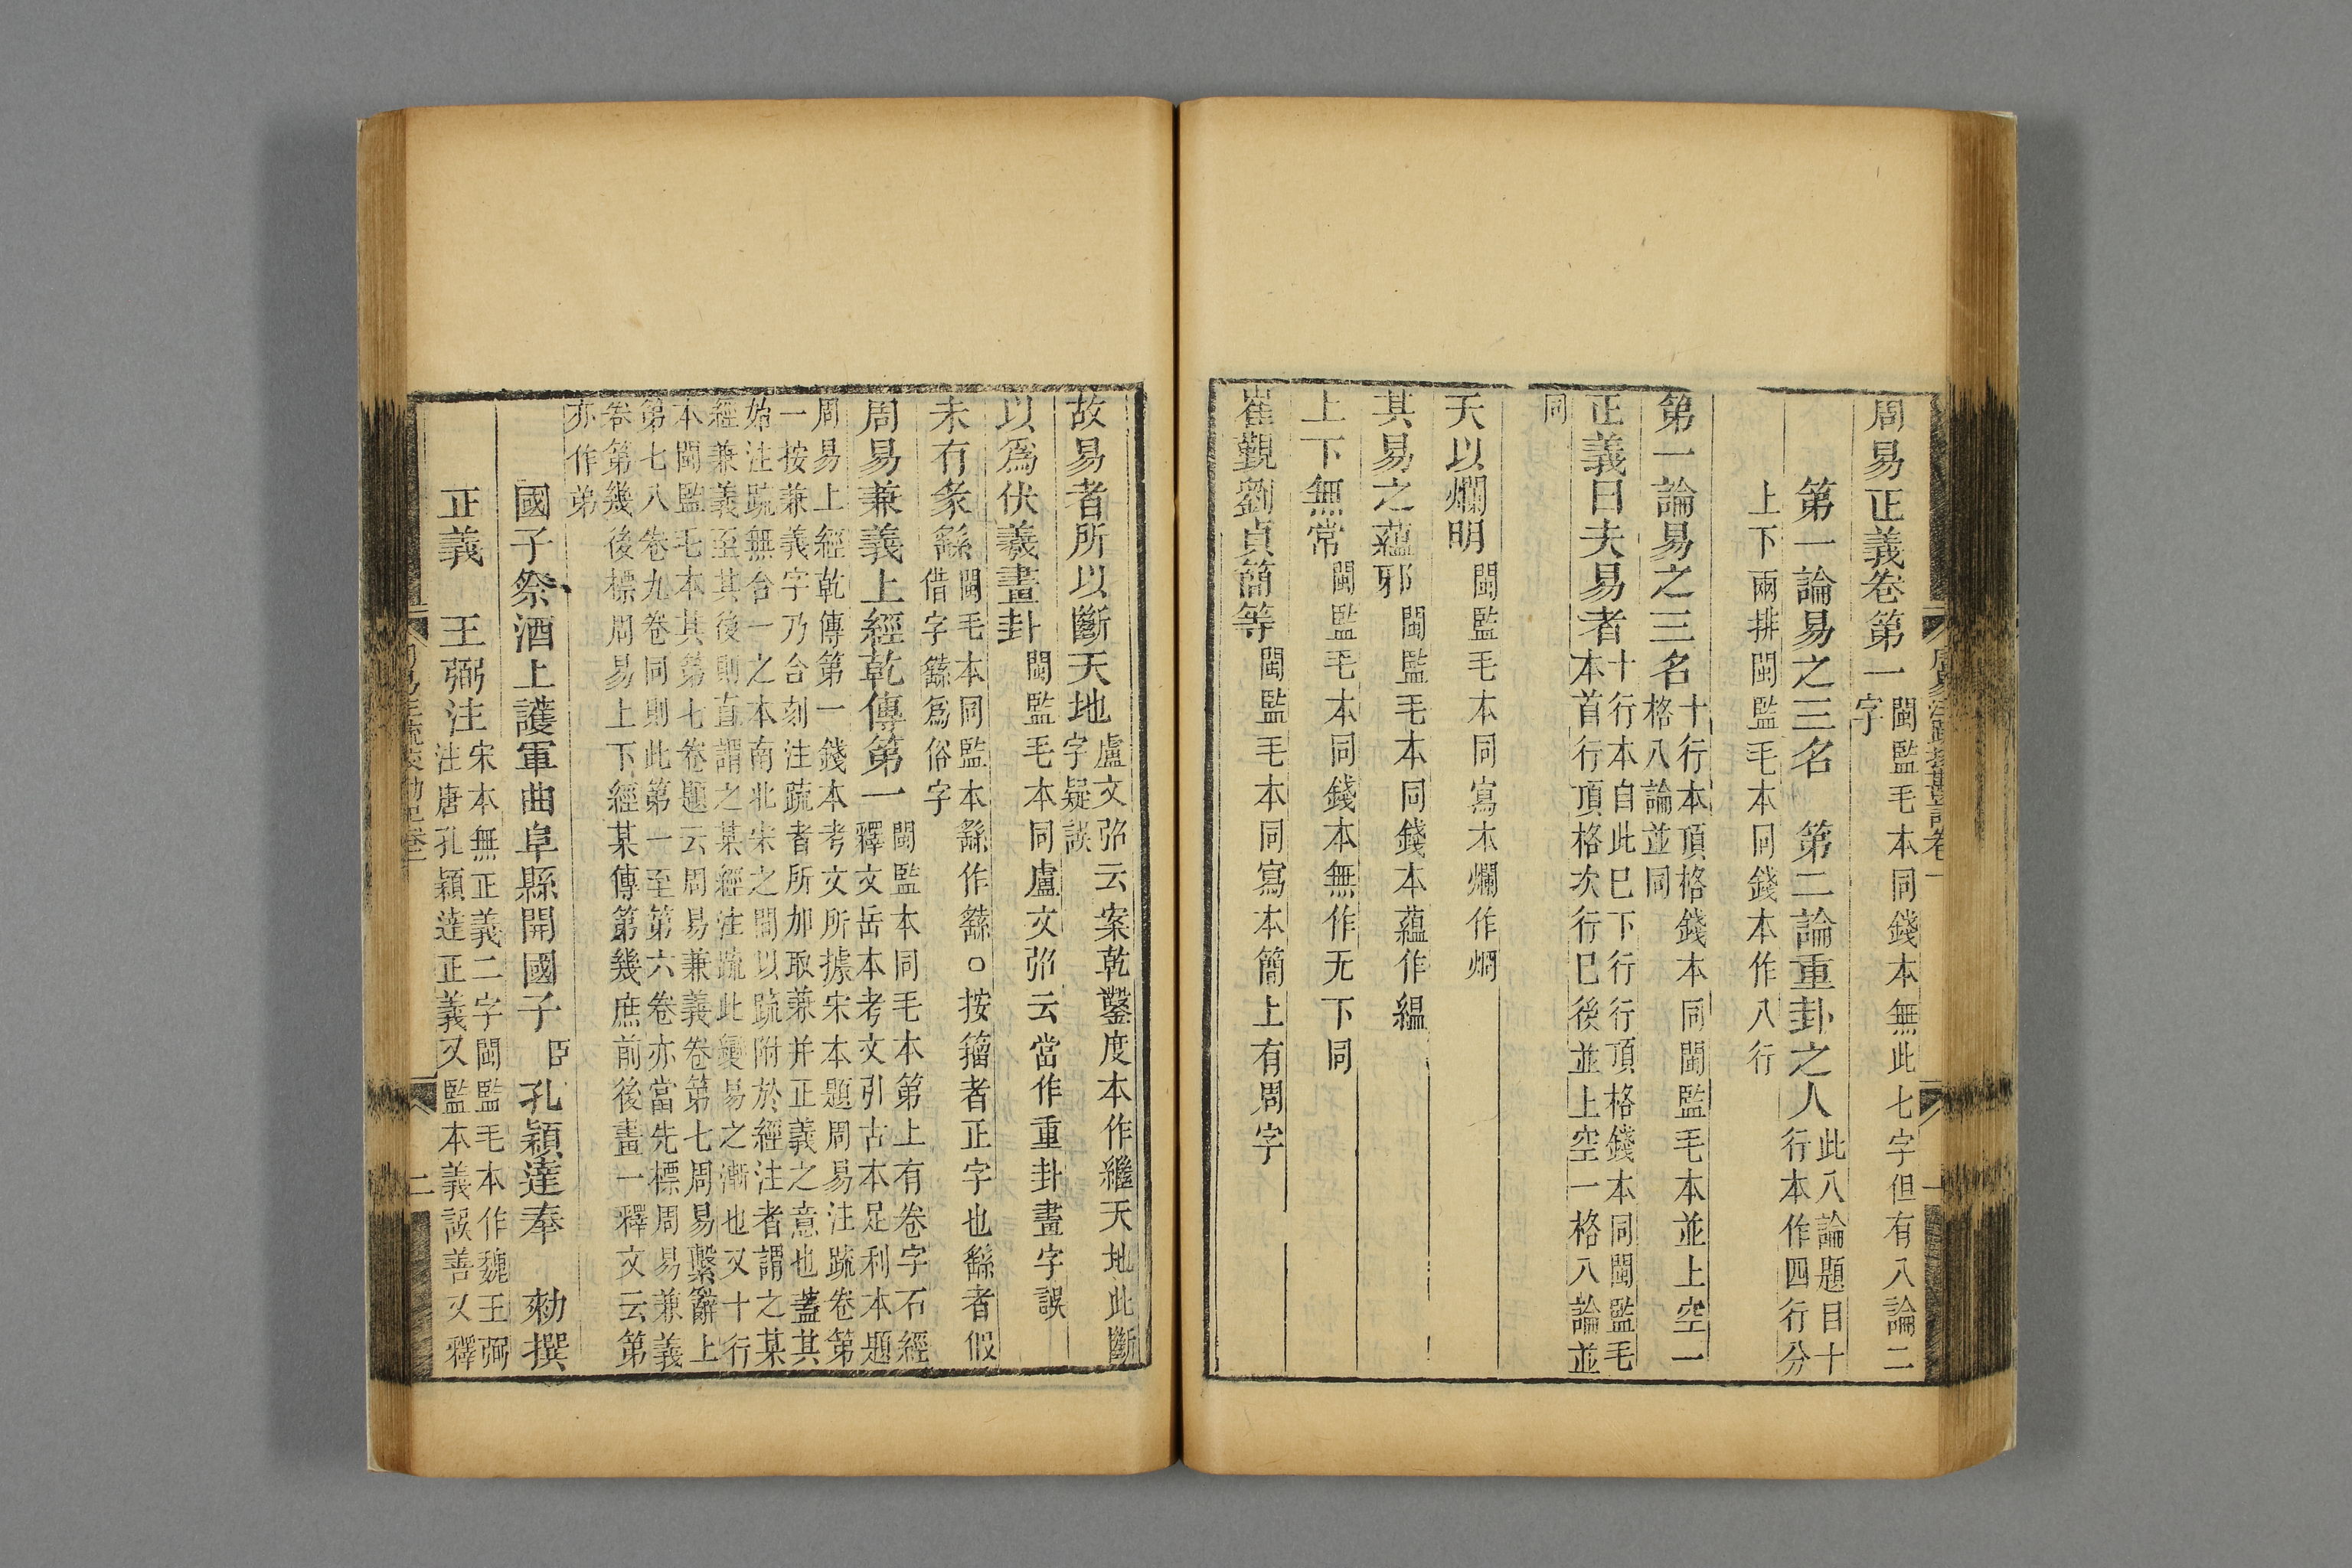 周易正義卷第一閩監毛本同錢本無此七字但有八論二
字
第一論易之三名　第二論重卦之人此八論題目十
行本作四行分
上下兩排閩監毛本同錢本作八行
第一論易之三名十行本頂格錢本同閩監毛本並上空一
格八論並同
正義曰夫易者十行本自此巳下行行頂格錢本同閩監毛
本首行頂格次行巳後並上空一格八論並
同
天以爛明閩監毛本同寫本爛作烱
其易之蘊邪閩監毛本同錢本蘊作緼
上下無常閩監毛本同錢本無作无下同
崔覲劉貞簡等閩監毛本同寫本簡上有周字
故易者所以斷天地盧文弨云案乾鑿度本作繼天地此斷
字疑誤
以爲伏羲畫卦閩監毛本同盧文弨云當作重卦畫字誤
未有彖繇閩毛本同監本繇作䌛○按籀者正字也繇者假
借字䌛爲俗字
周易兼義上經乾傳第一閩監本同毛本第上有卷字石經
釋文岳本考文引古本足利本題
周易上經乾傳第一錢本考文所據宋本題周易注疏卷第
一按兼義字乃合刻注疏者所加取兼并正義之意也蓋其
始注疏無合一之本南北宋之間以疏附於經注者謂之某
經兼義至其後則直謂之某經注疏此變易之漸也又十行
本閩監毛本其第七卷題云周易兼義卷第七周易繫辭上
第七八卷九卷同則此第一至第六卷亦當先標周易兼義
卷第幾後標周易上下經某傳第幾庶前後畫一釋文云第
亦作弟
國子祭酒上護軍曲阜縣開國子臣孔穎達奉　勑撰
正義
王弼注宋本無正義二字閩監毛本作魏王弼
注唐孔穎達正義又監本義誤善又釋